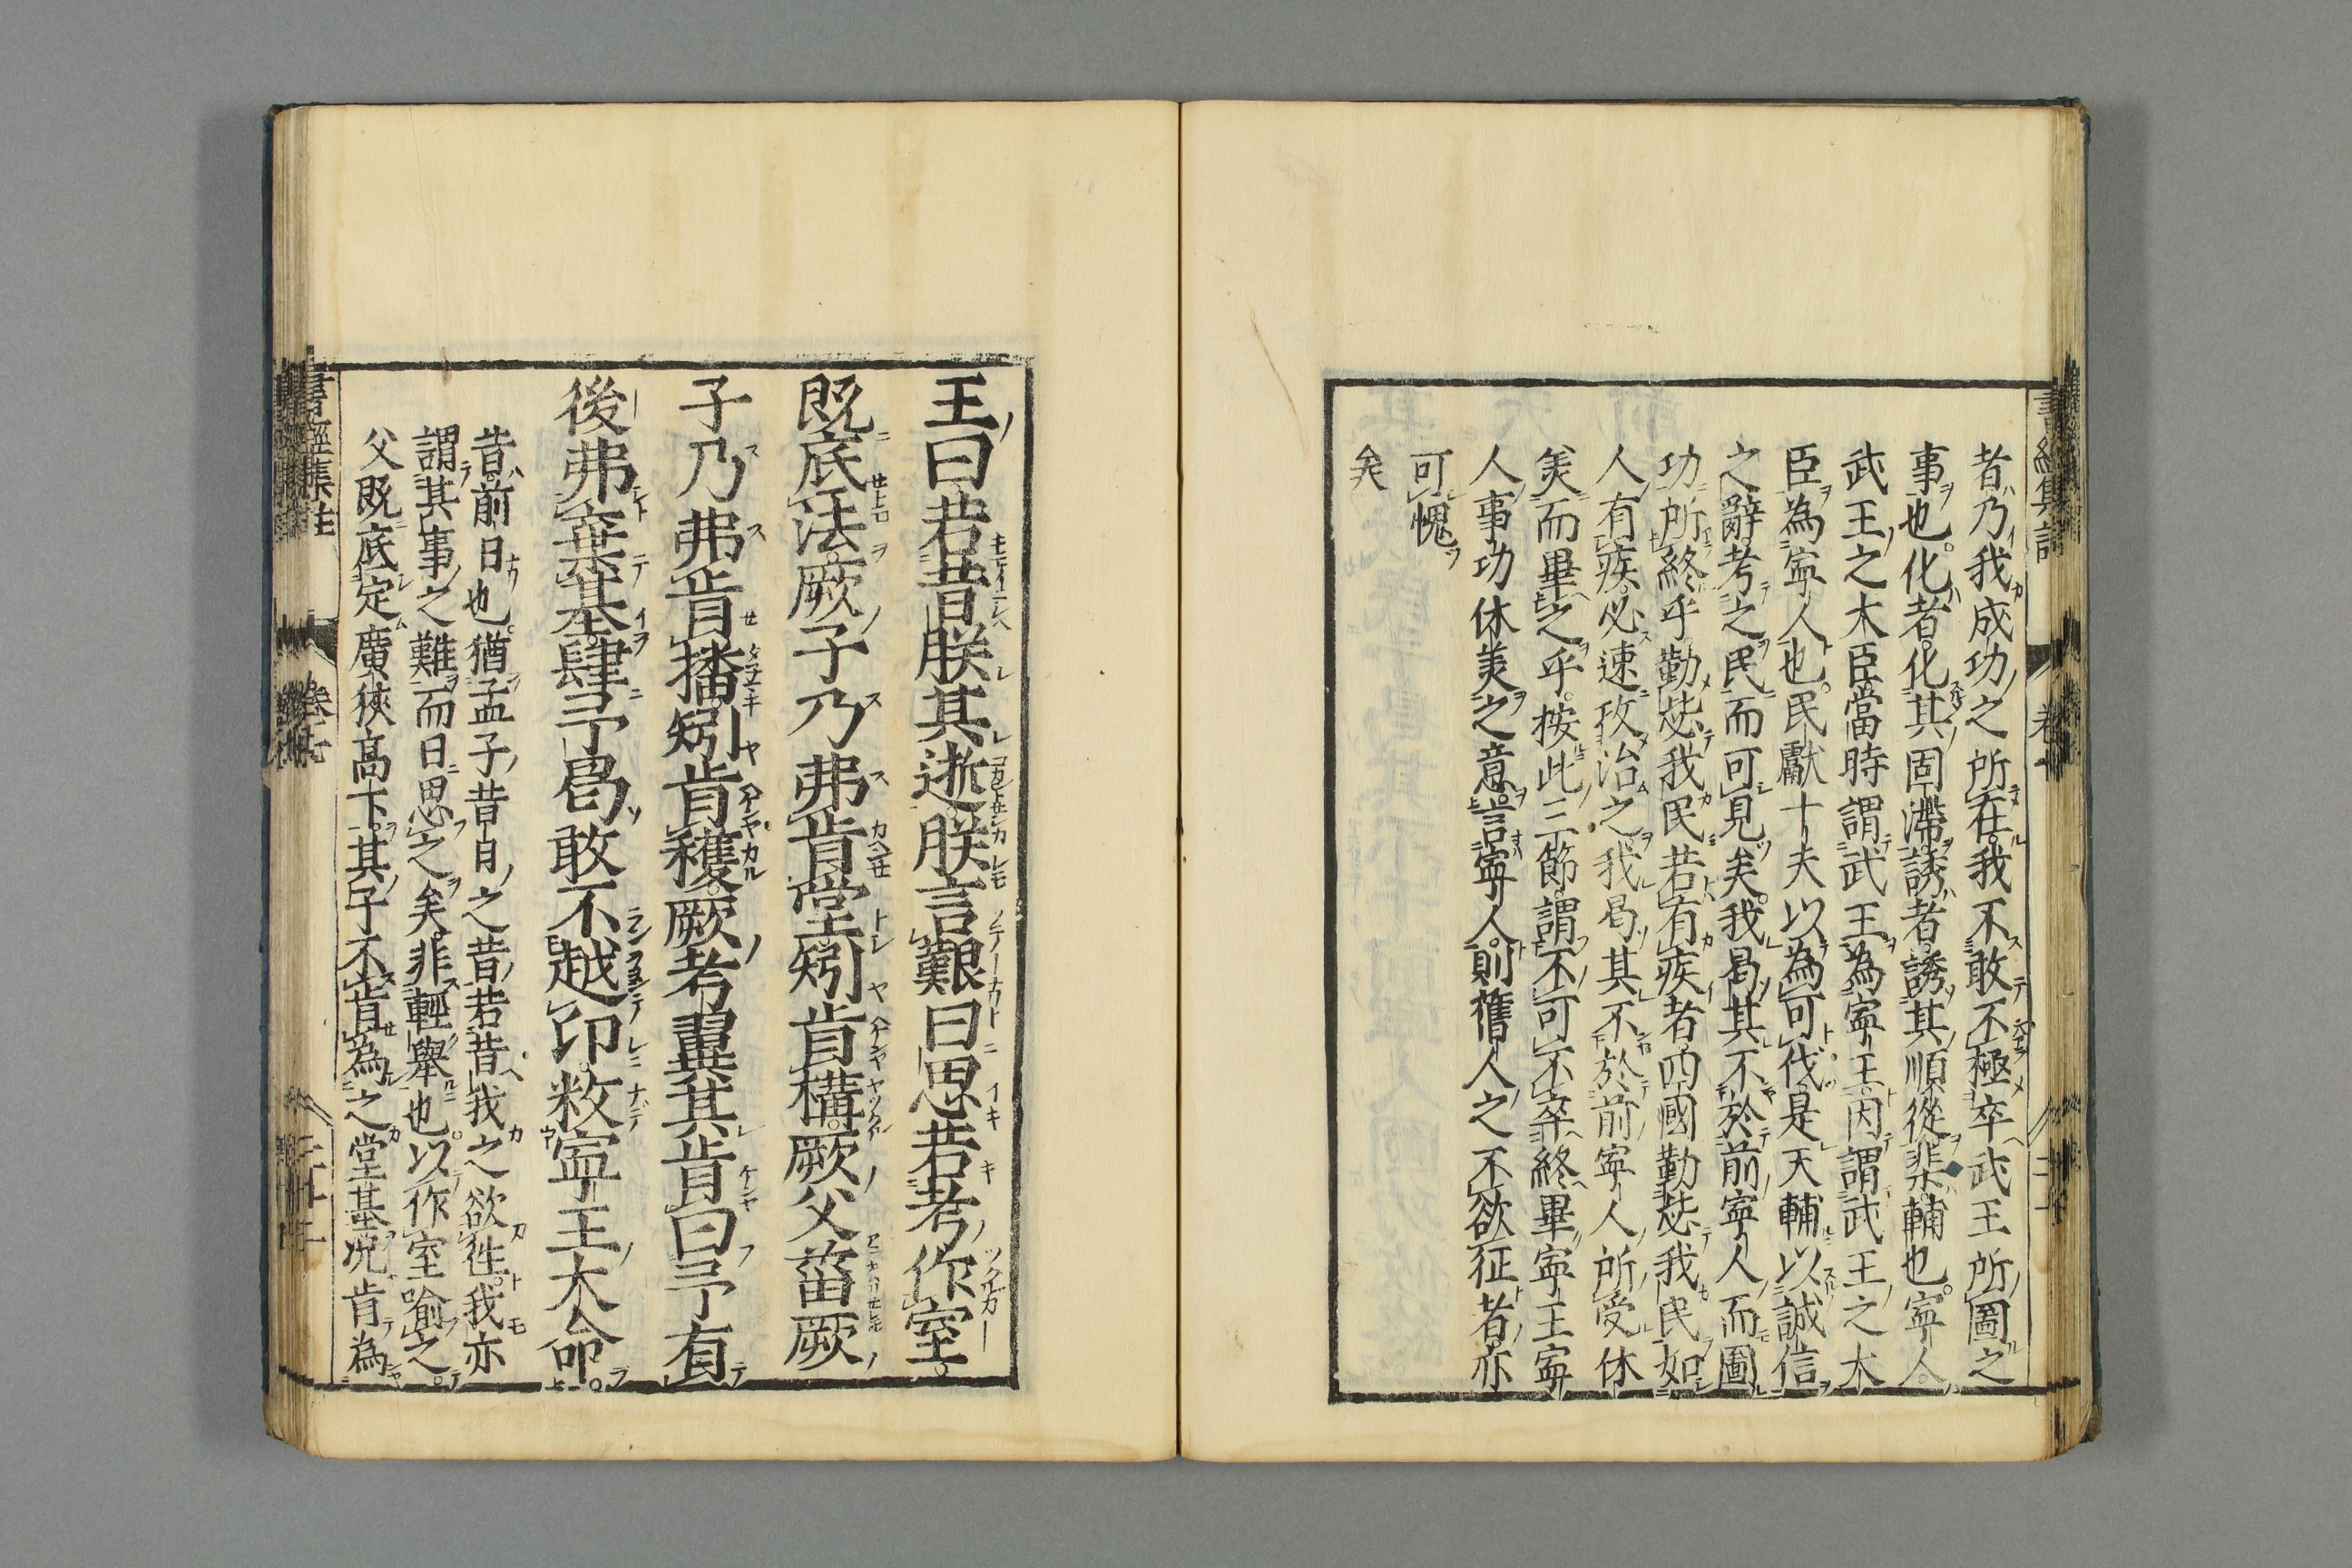 者乃我成功之所在我不敢不極卒武王所圖之
事也。化者化其固滯誘者誘其順從棐輔也。寧人
武王之大臣當時謂武王為寧王因謂武王之大
臣為寧人也。民獻十夫以為可伐是天輔以誠信
之辭考之民而可見矣。我曷其不於前寧人而圖
功所終乎勤毖我民若有疾者四國勤毖我民如
人有疾必速攻治之我曷其不於前寧人所受休
美而畢之乎。按此三節謂不可不卒終畢寧王寧
人事功休美之意言寧人則舊人之不欲征者亦
可愧
矣
王曰若昔朕其逝朕言艱日思若考作室。
既底法厥子乃弗肯堂矧肯構厥父菑厥
子乃弗肯播矧肯穫厥考翼其肯曰予有
後弗棄基肆予曷敢不越卬敉寧王大命。
昔前日也。猶孟子昔日之昔若昔我之欲往我亦
謂其事之難而日思之矣非輕舉也。以作室喻之。
父既底定廣狹高下其子不肯為之堂基況肯為
書經集註
卷七